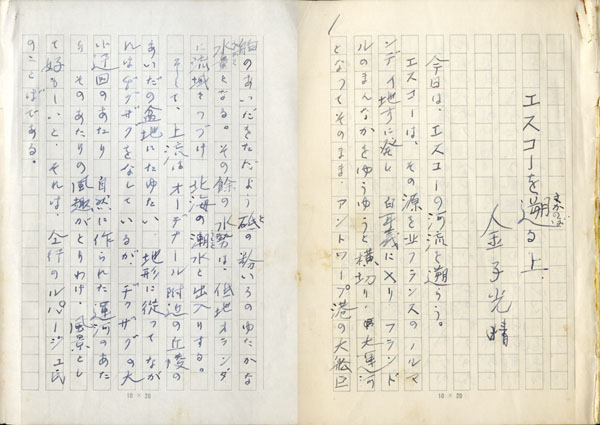 1
エスコーを遡る上.
さかのぼ
金子光晴
今日は、エスコーの河流を遡らう。
エスコーは、その源を北フランスのノルマ
ンディ地方に発し 白耳義に入り フランド
ルのまんなかをゆうゆうと横切り、大運河
となってそのまま、アントワープ港の大船巨
舶のあいだをただよう砥の粉いろのゆたかな
水量となる。その餘の水勢は、低地オランダ
に流域をつづけ 北海の潮水と出入りする。
そして、上流は オーデナール附近の丘陵の
あいだの盆地にたゆたい 地形に従ってなが
れはヂグザグをなしているが、ヂグザグの大
小迂回のあたり 自然に作られた運河のあた
り そのあたりの風趣がとりわけ、風景とし
て好もしいと、それは、同行のルパージュ氏
のことばである。
10×20
10×20